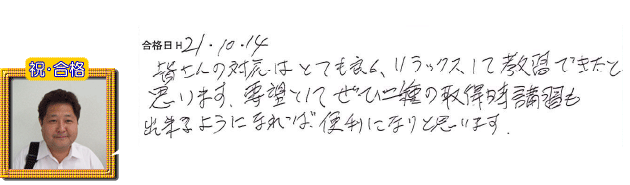 祝・合格
合格日 H21・10・14
皆さんの対応はとても良く、リラックスして教習できたと
思います。要望として ぜひ二種の取得時講習も
出来るようになれば便利になりと思います。